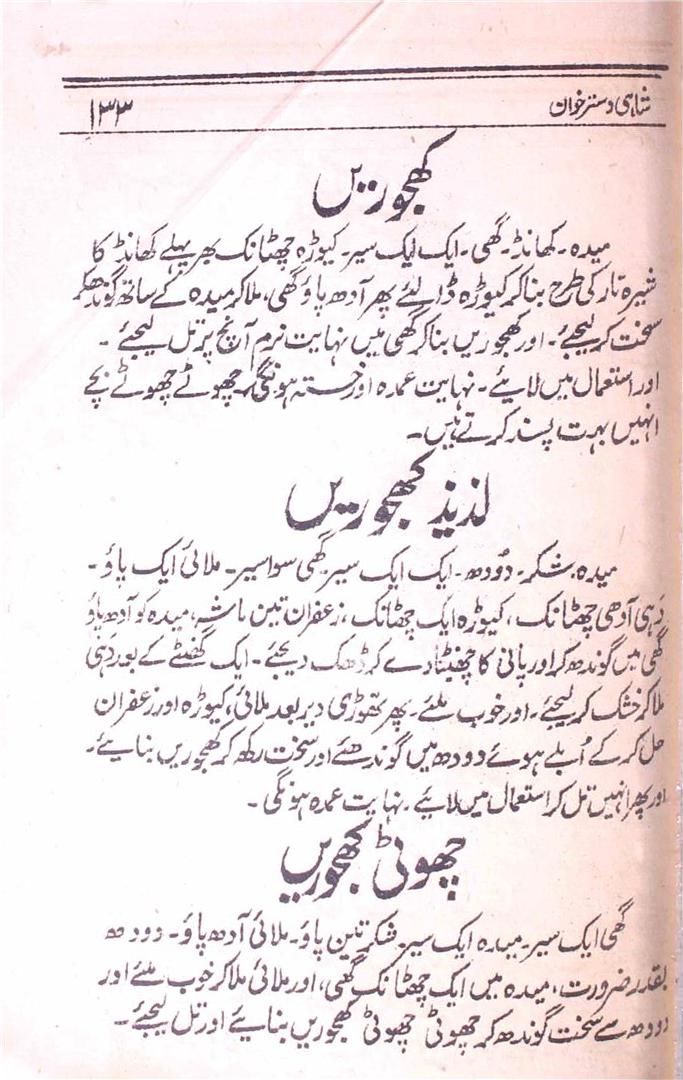 شاہی دسترخوان
۱۳۳
کھجوریں
میدہ۔ کھانڈ۔ گھی۔ ایک ایک سیر۔ کیوڑہ چھٹانک بھر پہلے کھانڈ کا
شیرہ تار کی طرح بنا کر کیوڑہ ڈالئے پھر آدھ پاؤ گھی، ملا کر میدہ کے ساتھ گوندھکر
سخت کر لیجئے۔ اور کھجوریں بنا کر گھی میں نہایت نرم آنچ پر تل لیجئے۔
اور استعمال میں لایئے۔ نہایت عمدہ اور خستہ ہونگی۔ چھوٹے چھوٹے بچے
انہیں بہت پسند کرتے ہیں۔
لذیذ کھجوریں
میدہ۔ شکر۔ دُودھ۔ ایک ایک سیر گھی سوا سیر۔ ملائی ایک پاؤ۔
دَہی آدھی چھٹانک، کیوڑہ ایک چھٹانک، زعفران تین ماشہ، میدہ کو آدھ پاؤ
گھی میں گوندھ کر اور پانی کا چھینٹا دے کر ڈھک دیجئے۔ ایک گھنٹے کے بعد دَہی
ملا کر خشک کر لیجئے۔ اور خوب ملئے۔ پھر تھوڑی دیر بعد ملائی، کیوڑہ اور زعفران
حل کر کے اُبلے ہوئے دودھ میں گوندھئے اور سخت رکھ کر کھجوریں بنایئے۔
اور پھر انہیں تل کر استعمال میں لایئے۔ نہایت عمدہ ہونگی۔
چھوٹی کھجوریں
گھی ایک سیر۔ میدہ ایک سیر۔ شکر تین پاؤ۔ ملائی آدھ پاؤ۔ دودھ
بقدر ضرورت، میدہ میں ایک چھٹانک گھی، اور ملائی ملا کر خوب ملئے اور
دودھ سے سخت گوندھ کر چھوٹی چھوٹی کھجوریں بنایئے اور تل لیجئے۔